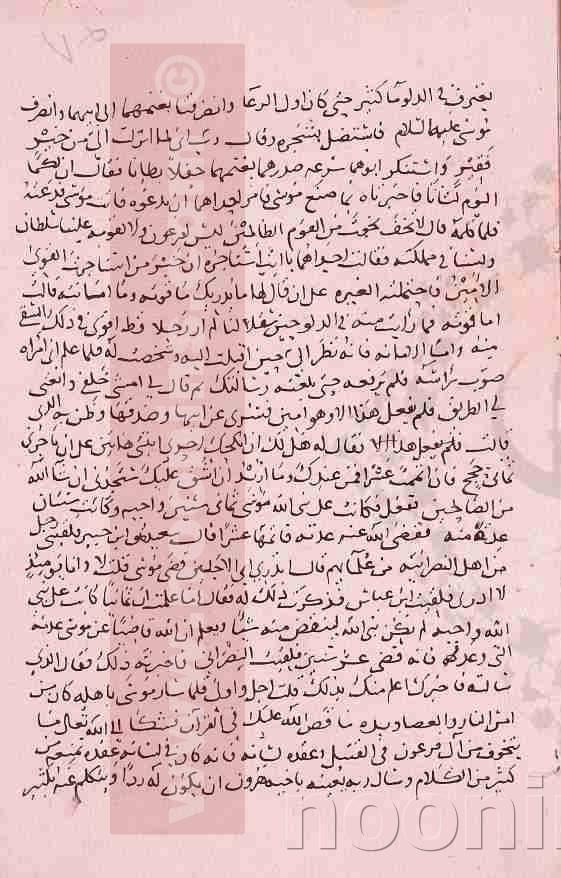 يغترف في الدلو ماء كثيرا حتى كان اول الرعاء وانصرفتا بغنمهما الى ابيهما وانصرف
موسى عليه السلام فاستظل بشجرة وقال رب اني لما انزلت الي من خير
فقير واستنكر ابوهما سرعة صدرهما بغنمهما حفلا بطانا فقال ان لكما
اليوم لشانا فاخبرتاه بما صنع موسى فامر احداهما ان تدعوه فاتت موسى فدعته
فلما كلمه قال لا تخف نجوت من القوم الظالمين ليس لفرعون ولا لقومه علينا سلطان
ولسنا في مملكته فقالت احداهما يا ابت استاجره ان خير من استاجرت القوي
الامين فاحتملته الغيرة على ان قال لها ما يدريك ما قوته وما امانته قالت
اما قوته فما رايت منه في الدلو حين سقى لنا لم ار رجلا قط اقوى في ذلك السقي
منه واما الامانة فانه نظر الي حين اقبلت اليه وشخصت له فلما علم اني امراة
صوب راسه فلم يرفعه حتى بلغته رسالتك ثم قال لي امشي خلفي وانعتي
لي الطريق فلم يفعل هذا الا وهو امين فسري عن ابيها وصدقها وظن به الذي
قالت فقال له هل لك ان انكحك احدى ابنتي هاتين على ان تاجرني
ثماني حجج فان اتممت عشرا فمن عندك وما اريد ان اشق عليك ستجدني ان شاء الله
من الصالحين ففعل فكانت على نبي الله موسى ثماني سنين واجبه وكانت سنتان
عدة منه فقضى الله عنه عدته فاتمها عشرا قال سعيد هو ابن جبير فلقيني رجل
من اهل النصرانية من علمائهم قال اتدري اي الاجلين قضى موسى قلت لا وانا يومئذ
لا ادري فلقيت ابن عباس فذكرت ذلك له فقال اما علمت ان ثمانيا كانت على نبي
الله واجبه لم يكن نبي الله لينقص منه شيئا ويعلم ان الله قاضيا عن موسى عدته
التي وعده فانه قضى عشر سنين فلقيت النصراني فاخبرته ذلك فقال الذي
سالته فاخبرك اعلم منك بذلك قلت اجل واولى فلما سار موسى باهله كان من
امر النار والعصا ويده ما قص الله عليك في القران فشكا الى الله تعالى ما
يتخوف من آل فرعون في القتيل وعقدة لسانه فانه كان في لسانه عقدة تمنعه من
كثير من الكلام وسال ربه يعينه باخيه هرون ان يكون له ردا ويتكلم عنه بكثير
noonli